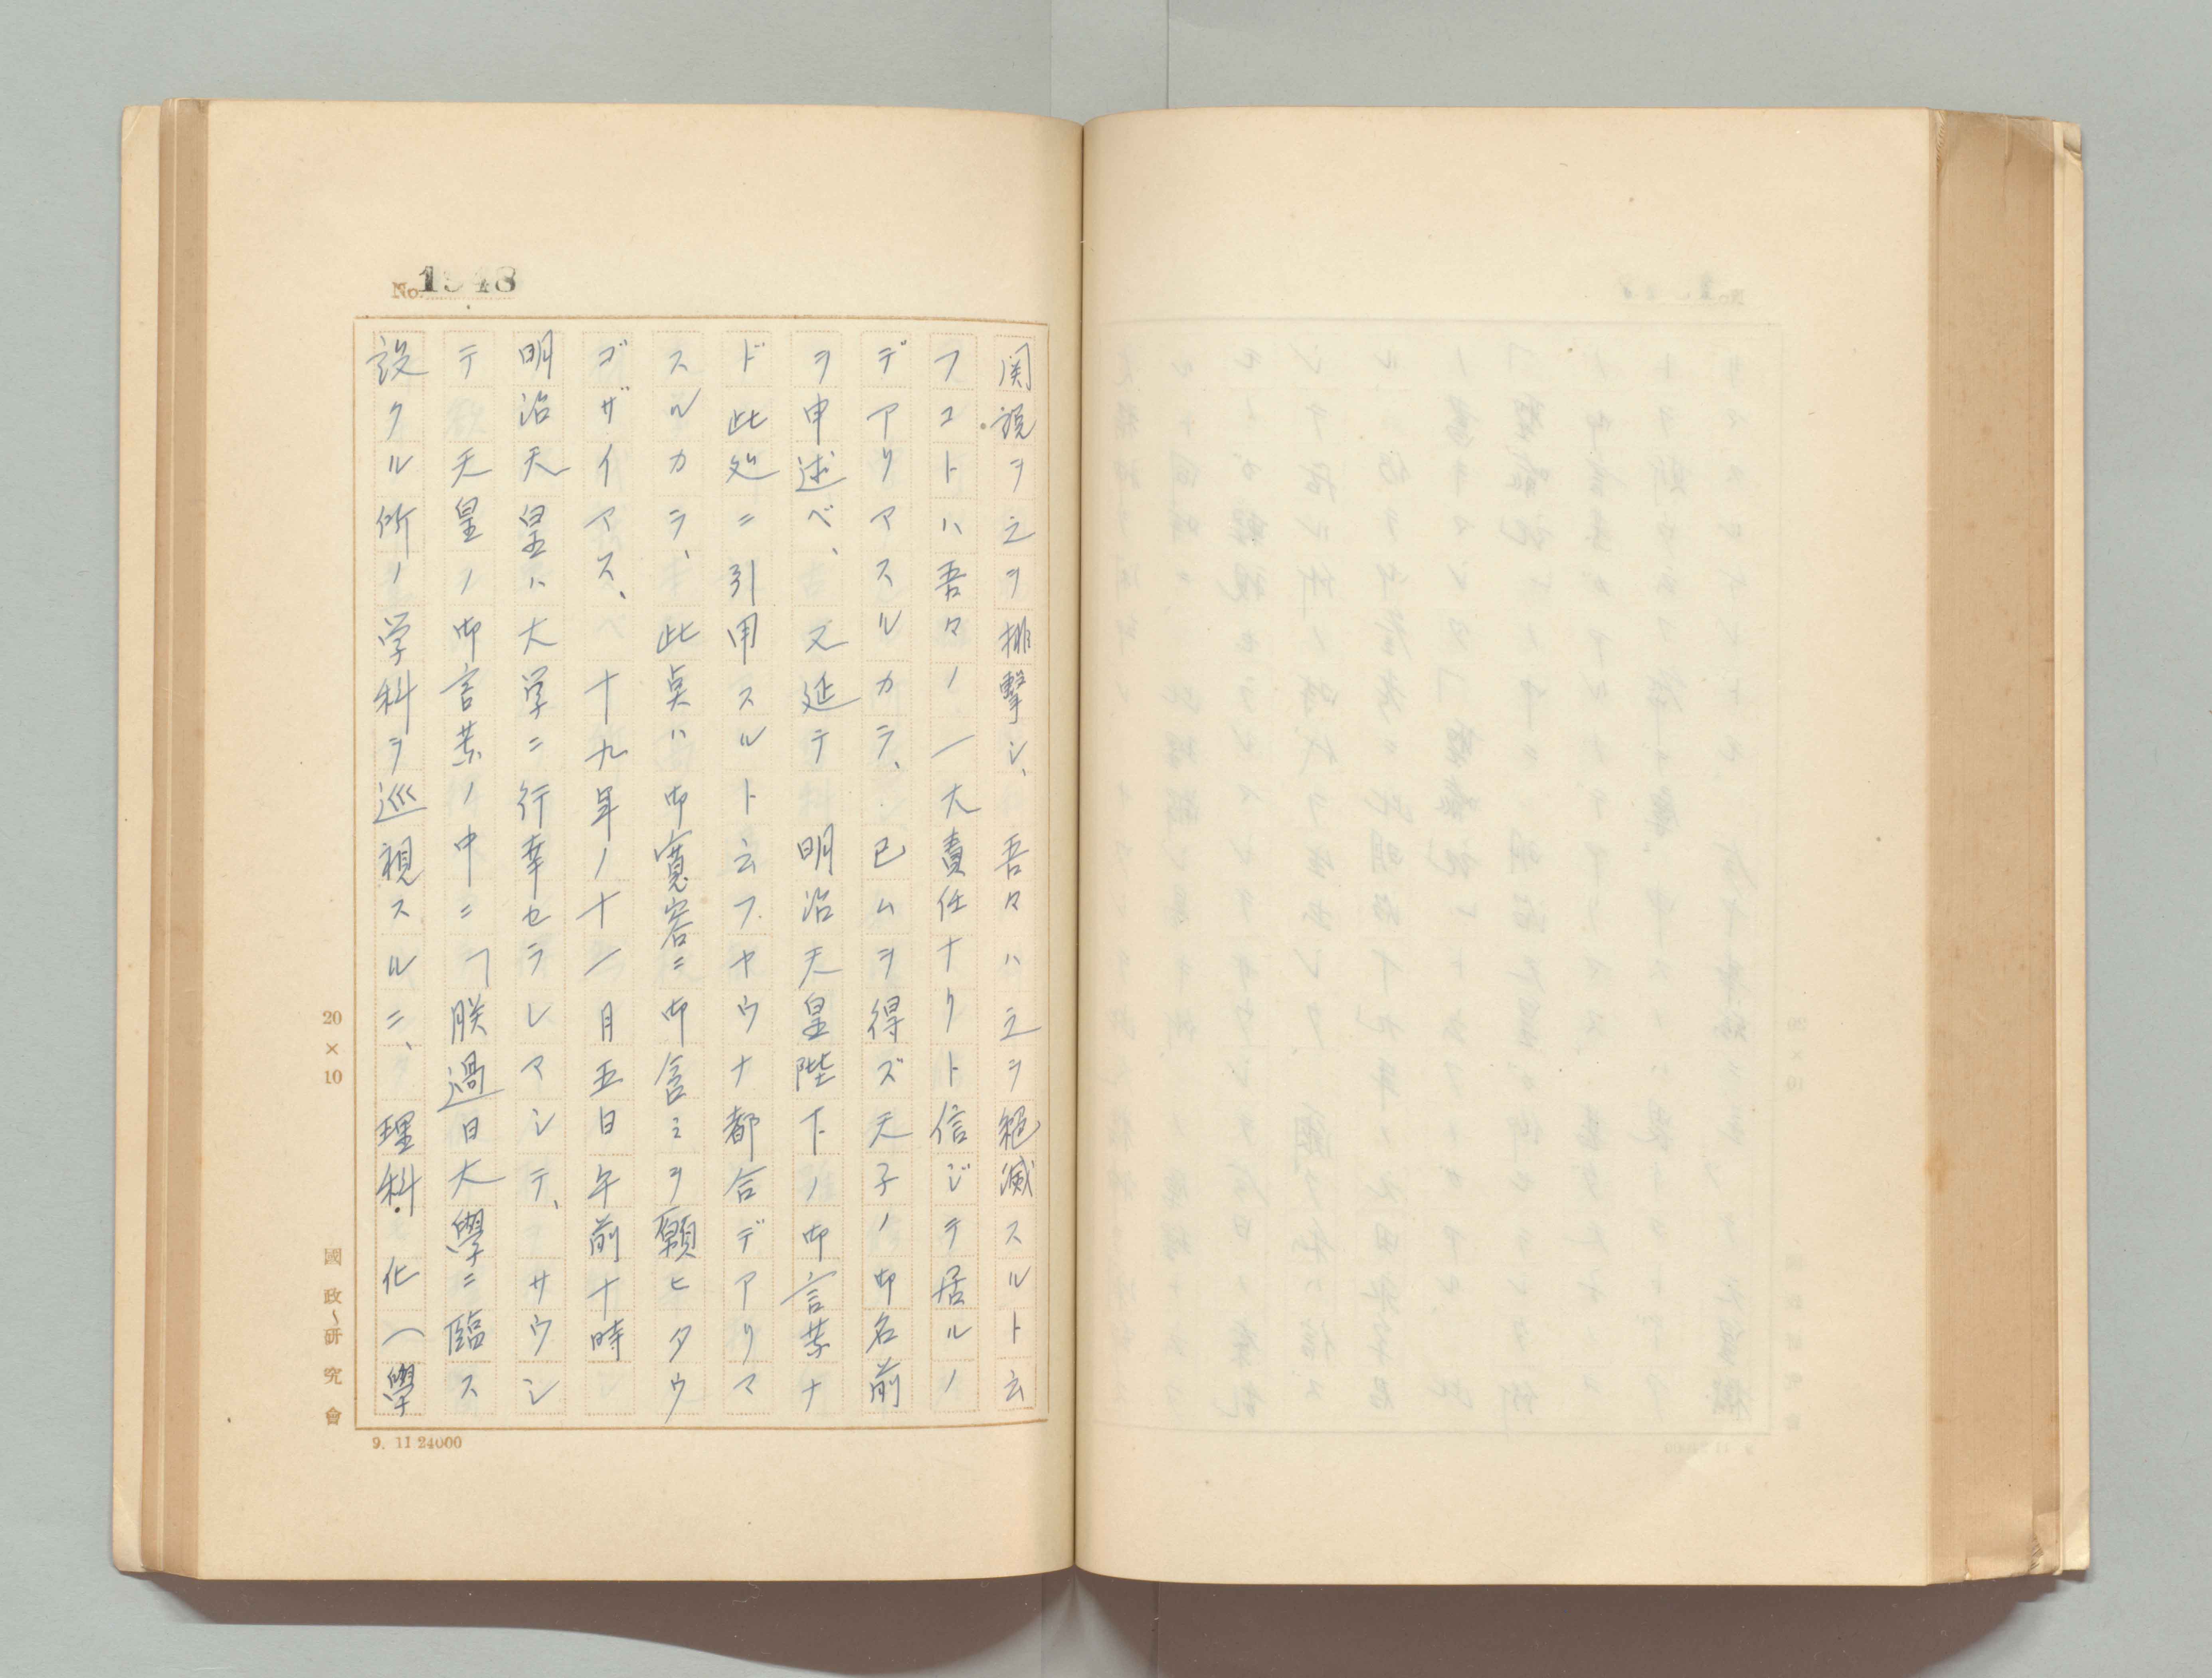 No. 1948
関説ヲ之ヲ排撃シ、吾々ハ之ヲ絶滅スルト云
フコトハ吾々ノ一大責任ナリト信ジテ居ルノ
デアリマスルカラ、已ムヲ得ズ天子ノ御名前
ヲ申述ベ、又延テ明治天皇陛下ノ御言葉ナ
ド此処ニ引用スルト云フヤウナ都合デアリマ
スルカラ、此点ハ御寛容ニ御含ミヲ願ヒタウ
ゴザイマス、十九年ノ十一月五日午前十時
明治天皇ハ大学ニ行幸セラレマシテ、サウシ
テ天皇ノ御言葉ノ中ニ「朕過日大學ニ臨ス
設クル所ノ学科ヲ巡視スルニ、理科・化(學
20×10
國政研究會
9. 11 24000